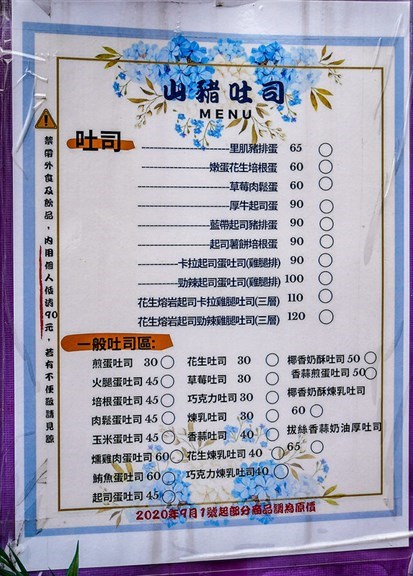 山豬吐司
MENU
吐司
里肌豬排蛋 65
嫩蛋花生培根蛋 60
草莓肉鬆蛋 60
厚牛起司蛋 90
藍帶起司豬排蛋 90
起司薯餅培根蛋 90
卡拉起司蛋吐司(雞腿排) 90
勁辣起司蛋吐司(雞腿排) 100
花生熔岩起司卡拉雞腿吐司(三層) 110
花生熔岩起司勁辣雞腿吐司(三層) 120
一般吐司區:
煎蛋吐司 30
火腿蛋吐司 45
培根蛋吐司 45
肉鬆蛋吐司 45
玉米蛋吐司 45
燻雞肉蛋吐司 60
鮪魚蛋吐司 60
起司蛋吐司 45
花生吐司 30
草莓吐司 30
巧克力吐司 30
煉乳吐司 30
香蒜吐司 40
花生煉乳吐司 40
巧克力煉乳吐司 40
椰香奶酥吐司 50
香蒜煎蛋吐司 50
椰香奶酥煉乳吐司
60
拔絲香蒜奶油厚吐司
65
2020年9月1號起部分商品調為原價
禁帶外食及飲品，內用個人低消90元，若有不便敬請見諒